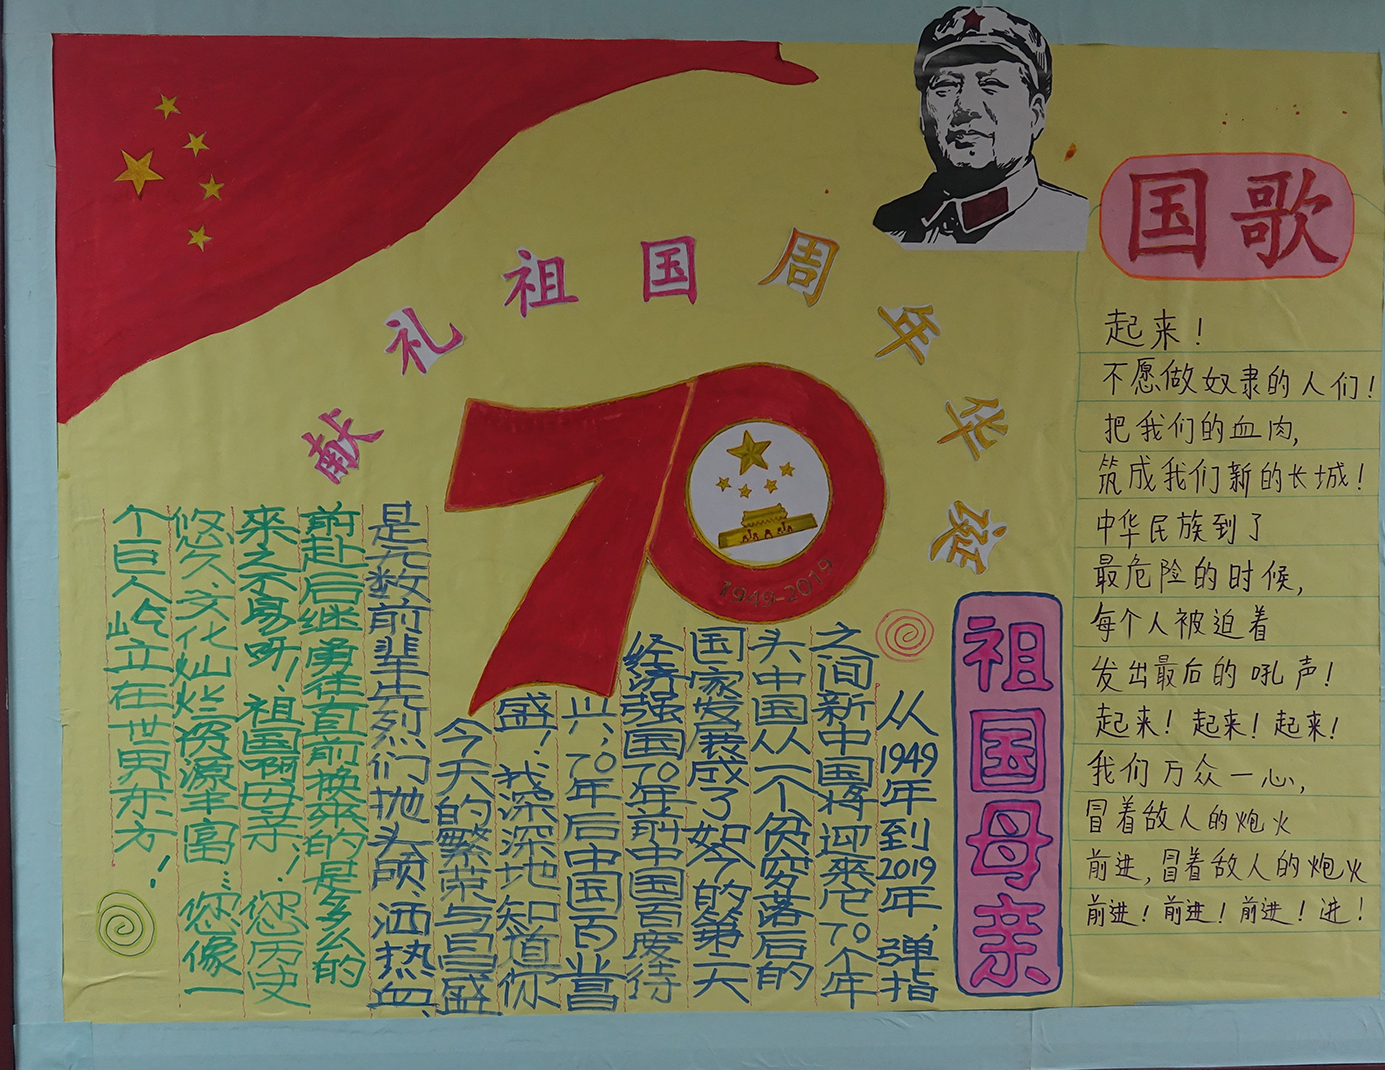 献礼祖国周年华诞
70
1949-2019
国歌
起来!
不愿做奴隶的人们!
把我们的血肉,
筑成我们新的长城!
中华民族到了
最危险的时候,
每个人被迫着
发出最后的吼声!
起来! 起来! 起来!
我们万众一心,
冒着敌人的炮火
前进,冒着敌人的炮火
前进! 前进! 前进! 进!
祖国母亲
从1949年到2019年,弹指
之间新中国将迎来它70个年
头中国从一个贫穷落后的
国家发展成了如今的第二大
经济强国70年前中国百废待
兴;70年后中国百业昌
盛!我深深地知道你
今天的繁荣与昌盛
是无数前辈先烈们抛头颅、洒热血、
前赴后继勇往直前换来的是多么的
来之不易呀!祖国啊母亲!您历史
悠久、文化灿烂资源丰富…您像一
个巨人屹立在世界东方!